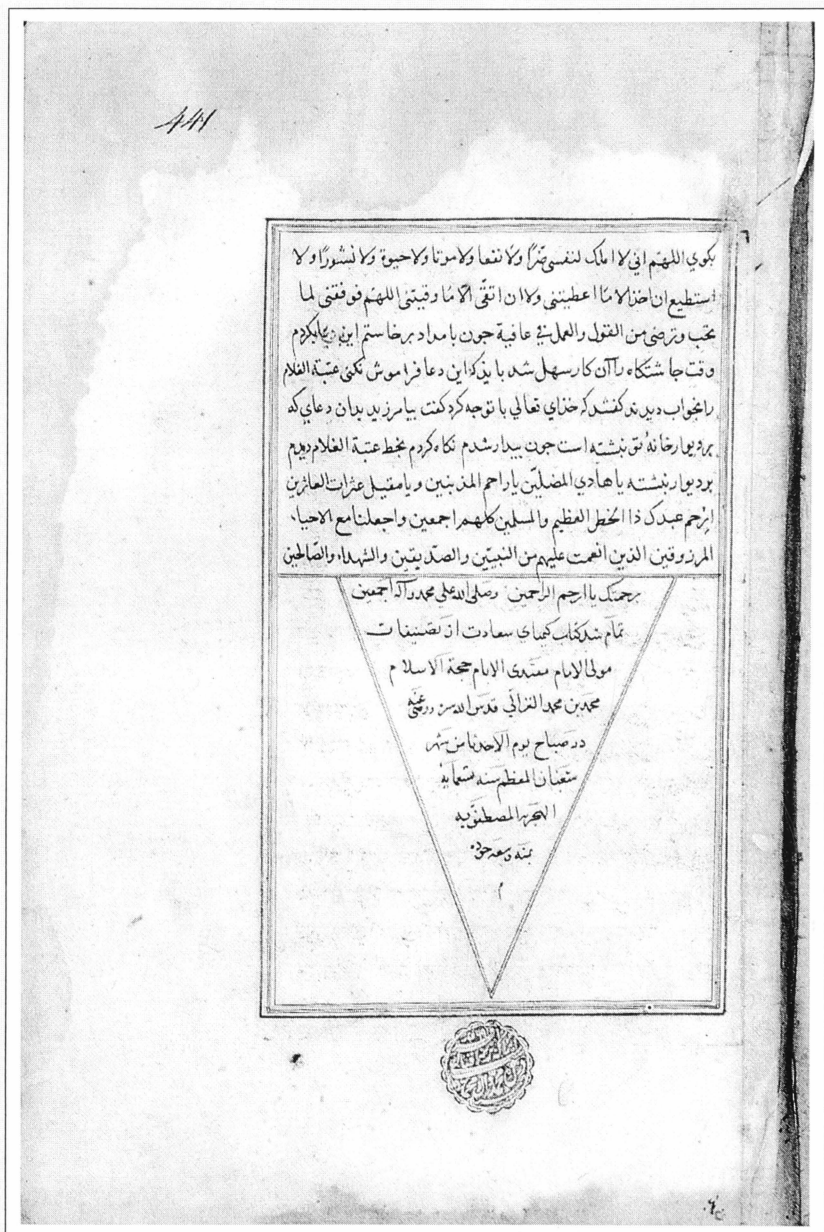 441
بكوي اللهم اني لا املك لنفسي ضرًّا ولا نفعا ولا موتا ولا حيوة ولا نشورًا ولا
استطيع ان اخذ الا ما اعطيتنی ولا ان اتقی الّا ما وقيتنی اللهم فوفقنی لما
تحب وترضی من القول والعمل فی عافية جون بامداد برخاستم اين دعا بكردم
وقت جاشتكاه را آن كار سهل شد بايذ كه اين دعا فراموش نكنی عتبة الغلام
را بخواب ديدند كفتند كه خذای تعالی با تو جه كرد كفت بيامرزيد بدان دعای كه
بر ديوار خانهٔ تو نبشته است جون بيدار شدم نكاه كردم بخط عتبة الغلام ديدم
بر ديوار نبشته يا هادي المضلّين يا راحم المذنبين ويا مقيل عثرات العاثرين
ارحم عبدك ذا الخطر العظيم والمسلمين كلهم اجمعين واجعلنا مع الاحياء
المرزوقين الذين انعمت عليهم من النبيّين والصدّيقين والشهداء والصّالحين
برحمتك يا ارحم الراحمين وصلی الله علی محمد وآله اجمعين
تمام شد كتاب كيمياي سعادت از تصنيفات
مولی الانام مقتدی الايام حجة الاسلام
محمد بن محمد الغزالی قدس الله سره ورضی عنه
در صباح يوم الاحد ثامن شهر
شعبان المعظم سنه تسعمايه
الهجريه المصطفويه
بمنه وسعه جوده
م